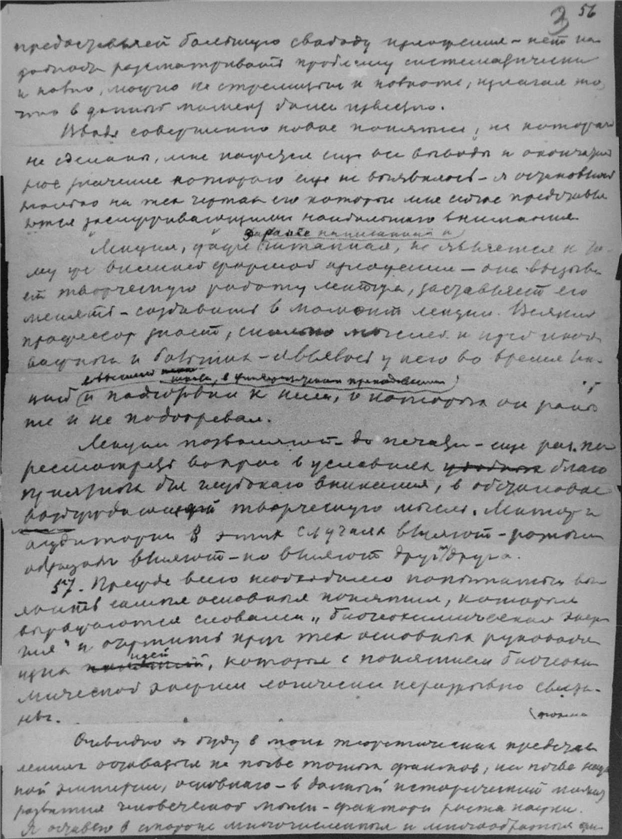 3 56
предоставляет большую свободу изложения – нет на-
добности рассматривать проблему систематически
и новно, можно не стремиться к новизне, излагая то,
что в данный момент было известно.
Вводя совершенно новое понятие, из которого
не сделаны, мне кажется еще все выводы и окончатель-
ное значение которого еще не выявилось – я остановлюсь
только на тех чертах его которые мне сейчас представля-
ются заслуживающими наибольшего внимания.
заранее написанная и
Лекция, даже читанная, не является к то-
му же внешней формой изложения – она вызыва-
ет творческую работу лектора, заставляет его
менять – создавать в момент лекции. Всякий
профессор знает, сколько мыслей и идей иногда
важных и больших – явилось у него во время лек-
в высшей школе, в университетском преподавании
ций и подготовки к ним, о которых он рань-
ше и не подозревал.
Лекции позволяют – до печати – еще раз пе-
ресмотреть вопрос в условиях благо-
приятных для глубокого внимания, в обстановке
возбуждающей творческую мысль. Лектор и
аудитория в этих случаях влияют – разным
образом влияют – но влияют друг на друга.
57. Прежде всего необходимо попытаться вы-
явить самые основные понятия, которые
выражаются словами „биогеохимическая энер-
гия" и очертить круг тех основных руководя-
щих идей, которые с понятием биогеохи-
мической энергии логически неразрывно связа-
ны.
только
Очевидно я буду в моих теоретических представ-
лениях оставаться на почве точных фактов, на почве науч-
ной эмпирии, основного – в данный исторический момент
развития человеческой мысли – фактора роста науки.
Я оставлю в стороне многочисленные и многообразные фи-